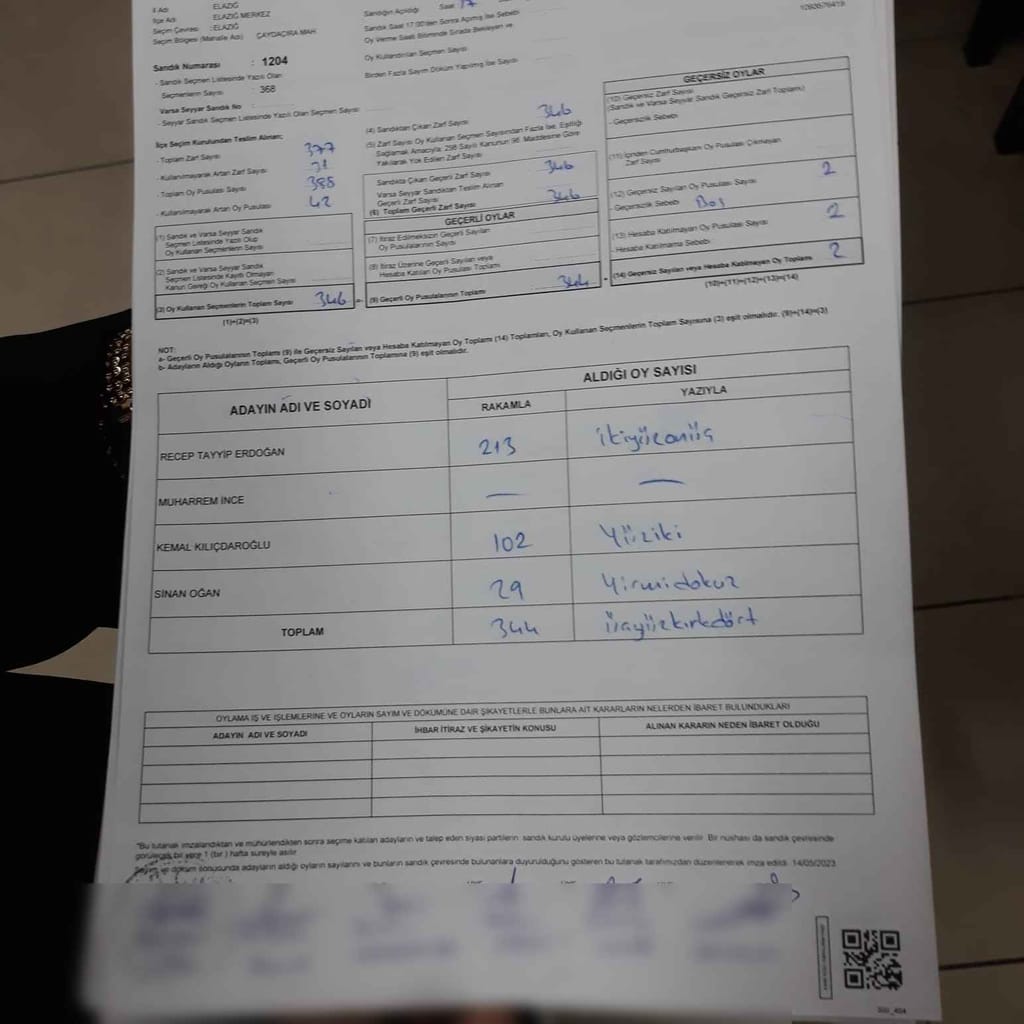 İl Adı ELAZIĞ
İlçe Adı ELAZIĞ MERKEZ
Seçim Çevresi : ELAZIĞ
Seçim Bölgesi (Mahalle Adı) ÇAYDAÇIRA MAH
Sandık Numarası : 1204
- Sandık Seçmen Listesinde Yazılı Olan
Seçmenlerin Sayısı : 368
Varsa Seyyar Sandık No :
- Seyyar Sandık Seçmen Listesinde Yazılı Olan Seçmen Sayısı
İlçe Seçim Kurulundan Teslim Alınan;
- Toplam Zarf Sayısı 377
- Kullanılmayarak Artan Zarf Sayısı 31
- Toplam Oy Pusulası Sayısı 385
- Kullanılmayarak Artan Oy Pusulası 42
(1) Sandık ve Varsa Seyyar Sandık
Seçmen Listesinde Yazılı Olup
Oy Kullanan Seçmenlerin Sayısı
(2) Sandık ve Varsa Seyyar Sandık
Seçmen Listesinde Kayıtlı Olmayan
Kanun Gereği Oy Kullanan Seçmen Sayısı
(3) Oy Kullanan Seçmenlerin Toplam Sayısı 346
(1)+(2)=(3)
Sandığın Açıldığı Saat 17
Sandık Saat 17:00'den Sonra Açılmış İse Sebebi
Oy Verme Saati Bitiminde Sırada Bekleyen ve
Oy Kullandırılan Seçmen Sayısı
Birden Fazla Sayım Döküm Yapılmış İse Sayısı
(4) Sandıktan Çıkan Zarf Sayısı 346
(5) Zarf Sayısı Oy Kullanan Seçmen Sayısından Fazla İse, Eşitliği
Sağlamak Amacıyla; 298 Sayılı Kanunun 98. Maddesine Göre
Yakılarak Yok Edilen Zarf Sayısı
Sandıkta Çıkan Geçerli Zarf Sayısı 346
Varsa Seyyar Sandıktan Teslim Alınan
Geçerli Zarf Sayısı
(6) Toplam Geçerli Zarf Sayısı 346
GEÇERLİ OYLAR
(7) İtiraz Edilmeksizin Geçerli Sayılan
Oy Pusulalarının Sayısı
(8) İtiraz Üzerine Geçerli Sayılan veya
Hesaba Katılan Oy Pusulası Toplamı
(9) Geçerli Oy Pusulalarının Toplamı 344
GEÇERSİZ OYLAR
(10) Geçersiz Zarf Sayısı
(Sandık ve Varsa Seyyar Sandık Geçersiz Zarf Toplamı)
- Geçersizlik Sebebi
(11) İçinden Cumhurbaşkanı Oy Pusulası Çıkmayan
Zarf Sayısı
(12) Geçersiz Sayılan Oy Pusulası Sayısı 2
- Geçersizlik Sebebi Boş
(13) Hesaba Katılmayan Oy Pusulası Sayısı 2
- Hesaba Katılmama Sebebi
(14) Geçersiz Sayılan veya Hesaba Katılmayan Oy Toplamı 2
(10)+(11)+(12)+(13)=(14)
NOT:
a- Geçerli Oy Pusulalarının Toplamı (9) ile Geçersiz Sayılan veya Hesaba Katılmayan Oy Toplamı (14) Toplamları, Oy Kullanan Seçmenlerin Toplam Sayısına (3) eşit olmalıdır. (9)+(14)=(3)
b- Adayların Aldığı Oyların Toplamı, Geçerli Oy Pusulalarının Toplamına (9) eşit olmalıdır.
ADAYIN ADI VE SOYADI
ALDIĞI OY SAYISI
RAKAMLA YAZIYLA
RECEP TAYYİP ERDOĞAN 213 ikiyüzonüç
MUHARREM İNCE — —
KEMAL KILIÇDAROĞLU 102 Yüziki
SİNAN OĞAN 29 Yirmidokuz
TOPLAM 344 üçyüzkırkdört
OYLAMA İŞ VE İŞLEMLERİNE VE OYLARIN SAYIM VE DÖKÜMÜNE DAİR ŞİKAYETLERLE BUNLARA AİT KARARLARIN NELERDEN İBARET BULUNDUKLARI
ADAYIN ADI VE SOYADI İHBAR İTİRAZ VE ŞİKAYETİN KONUSU ALINAN KARARIN NEDEN İBARET OLDUĞU
*Bu tutanak imzalandıktan ve mühürlendikten sonra seçime katılan adayların ve talep eden siyasi partilerin sandık kurulu üyelerine veya gözlemcilerine verilir. Bir nüshası da sandık çevresinde
görülecek bir yere 1 (bir) hafta süreyle asılır
Sayım ve döküm sonucunda adayların aldığı oyların sayılarını ve bunların sandık çevresinde bulunanlara duyurulduğunu gösteren bu tutanak tarafımızdan düzenlenerek imza edildi. 14/05/2023